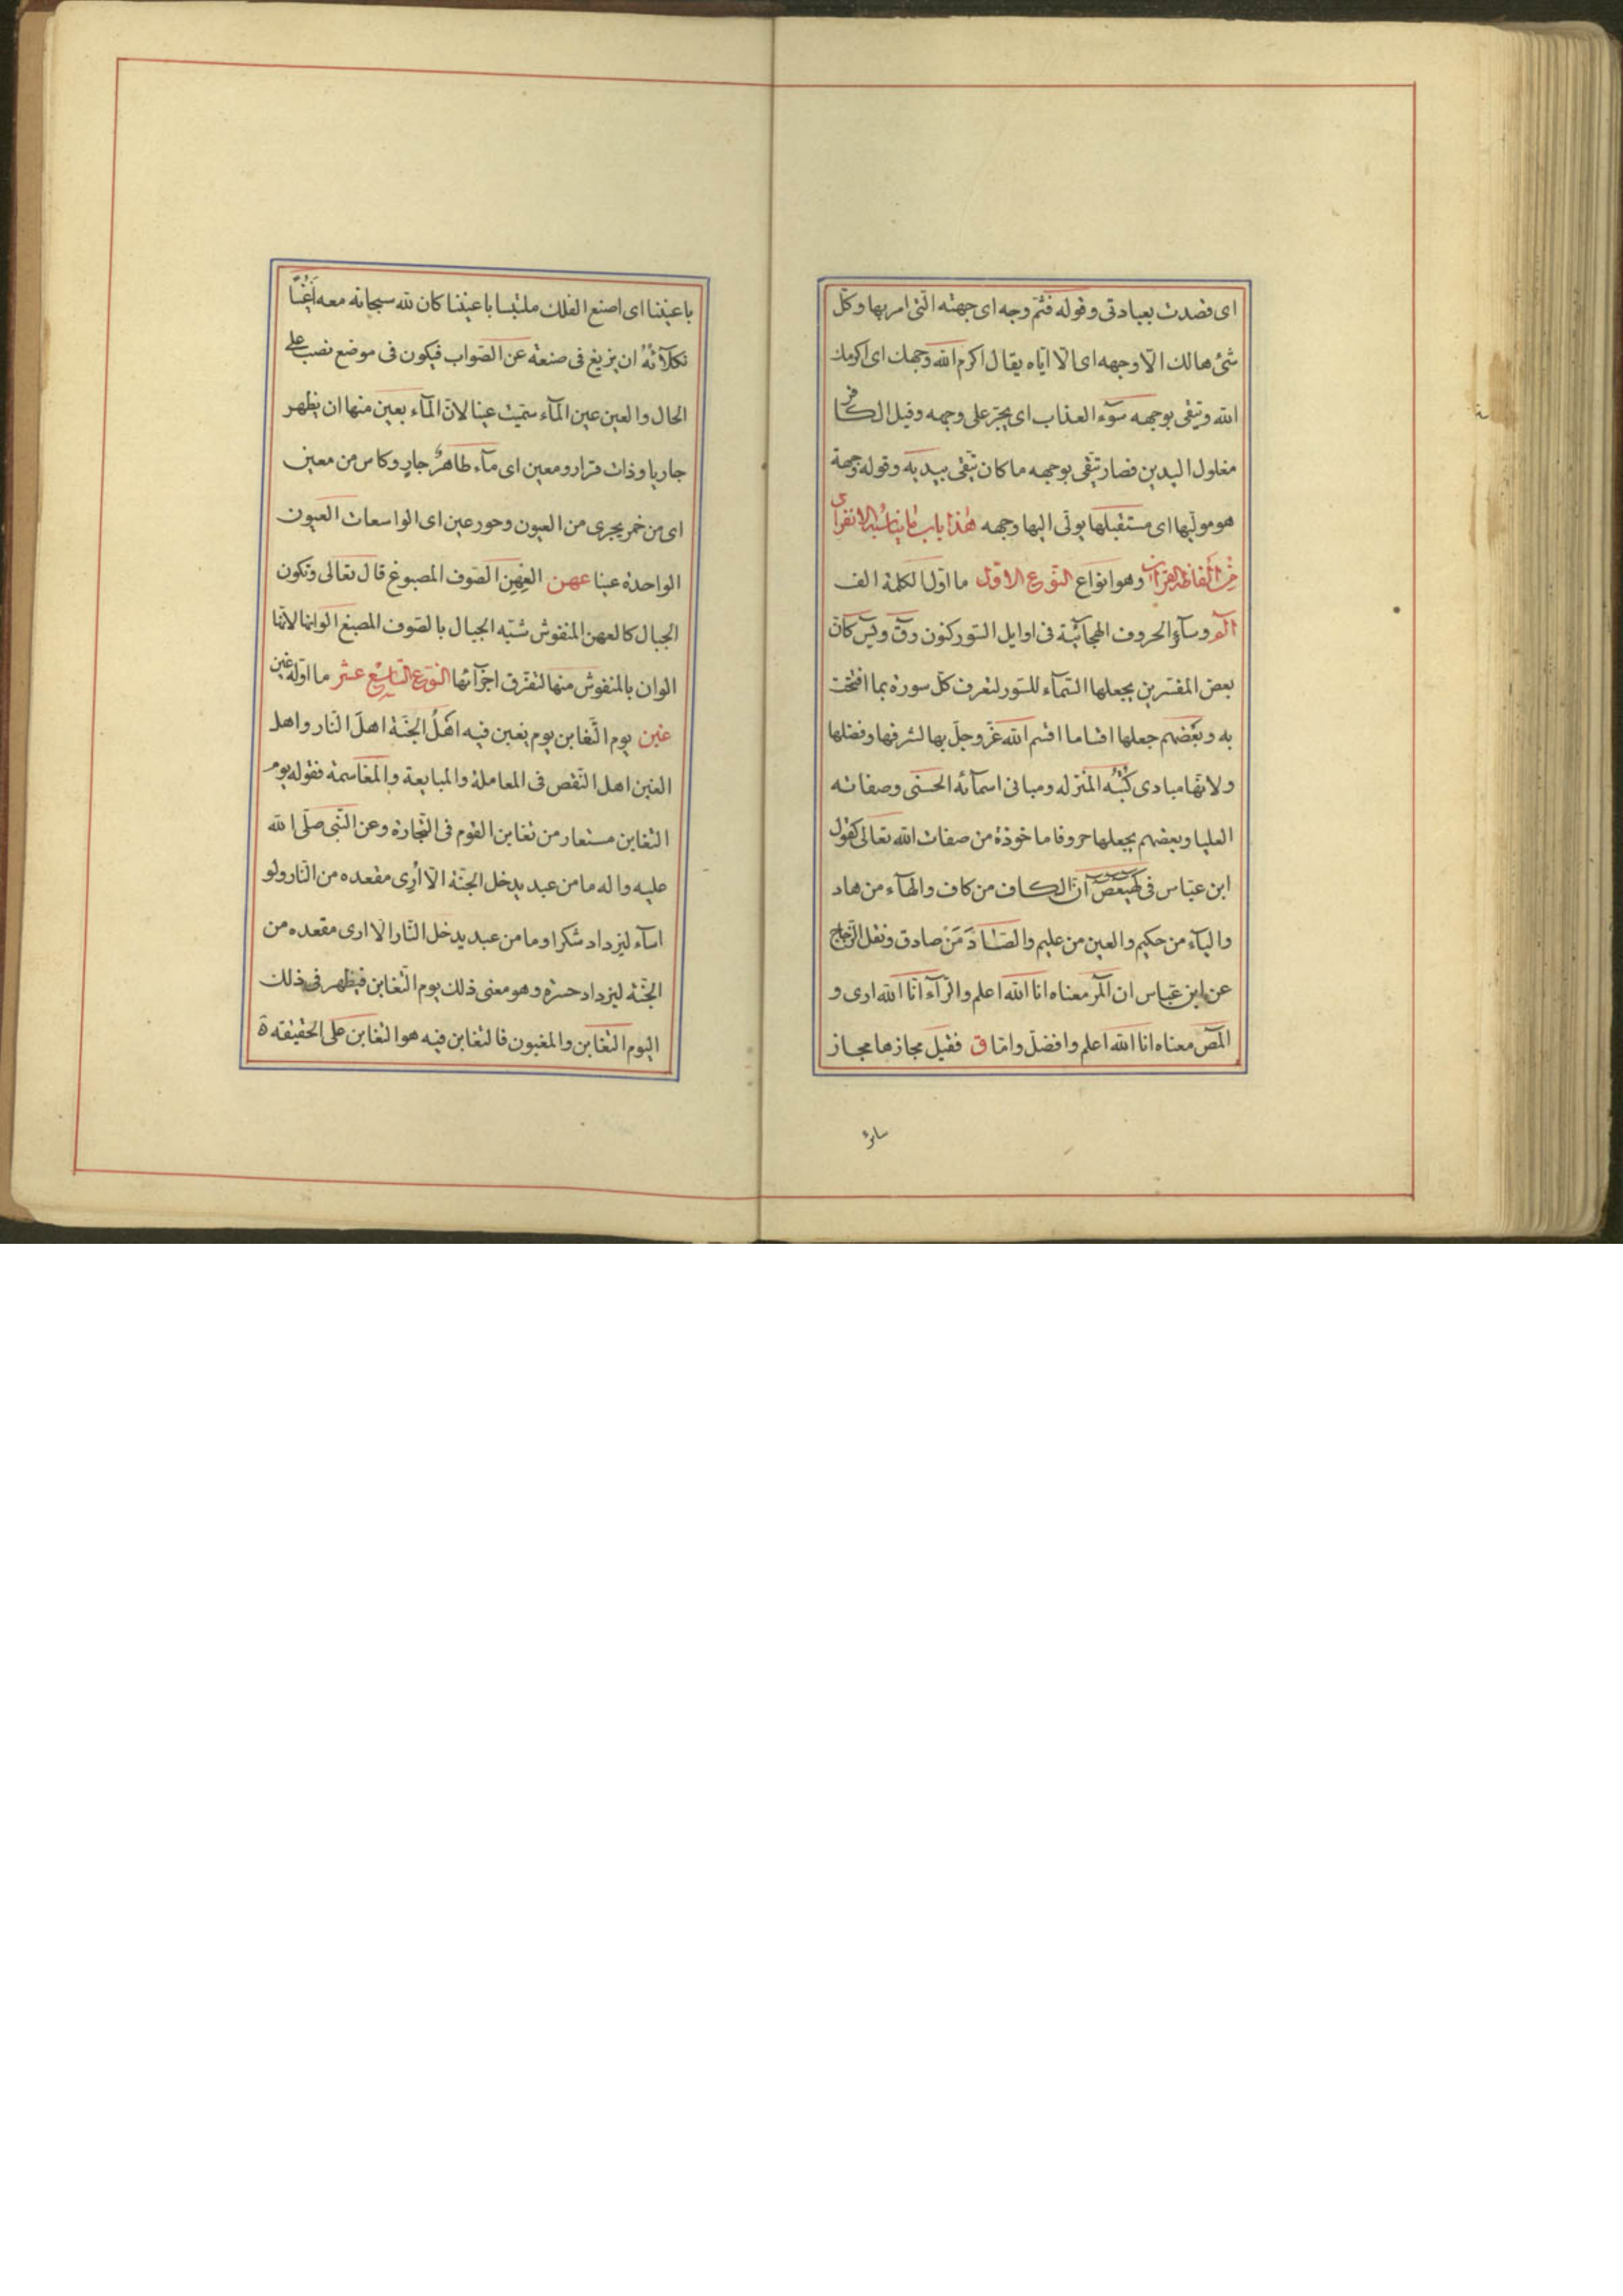 اى قصدت بعبادتى وقوله فثم وجه اى جهته التى امر بها وكل
شئ هالك الّا وجهه اى الّا ايّاه يقال اكرم الله وجهك اى اكرمك
الله ويتقى بوجهه سوٓء العذاب اى يجرّ على وجهه وقيل الكافر
مغلول اليدين فصار يتّقى بوجهه ما كان يتّقى بيديه وقوله وجهة
هو مولّيها اى مستقبلها يولّى اليها وجهه هذا باب ما يناسبه الانفراد
من الفاظ القرآن وهو انواع النّوع الاوّل ما اوّل الكلمة الف
الٓمٓ وسآئر الحروف الهجآئيّة فى اوايل السّور كنون وقٓ ويسٓ كان
بعض المفسّرين يجعلها اسمآء للسّور لتعرف كل سورة بما افتتحت
به وبعضهم جعلها اقساما اقسم الله عزّ وجلّ بها لشرفها وفضلها
ولانها مبادى كتبه المنزله ومبانى اسمآئه الحسنى وصفاته
العليا وبعضهم يجعلها حروفا ماخوذة من صفات الله تعالى كقول
ابن عبّاس فى كهيعص انّ الكاف من كاف والهآء من هاد
واليآء من حكيم والعين من عليم والصّاد من صادق ونقل الزّجاج
عن ابن عبّاس ان الٓمٓر معناه انا الله اعلم والرّآء انا الله ارى و
الٓمٓصٓ معناه انا الله اعلم وافضل وامّا ق فقيل مجازها مجاز
سائر
باعيننا اى اصنع الفلك ملتبسا باعيننا كان لله سبحانه معه اعينا
تكلآئه ان يزيغ فى صنعته عن الصّواب فيكون فى موضع نصب على
الحال والعين عين المآء سمّيت عينا لانّ المآء بعين منها ان يظهر
جاريا وذات قرار ومعين اى مآء طاهر جار وكاس من معين
اى من خمر يجرى من العيون وحور عين اى الواسعات العيون
الواحدة عينا عهن العهن الصّوف المصبوغ قال تعالى وتكون
الجبال كالعهن المنفوش شبّه الجبال بالصّوف المصبغ الوانها لانّها
الوان بالمنفوش منها لتفرّق اجزآئها النّوع التّاسع عشر ما اوّله غين
غبن يوم التّغابن يوم يغبن فيه اهل الجنّة اهل النّار واهل
الغبن اهل النّقص فى المعاملة والمبايعة والمقاسمة فقوله يوم
التغابن مستعار من تغابن القوم فى التّجارة وعن النّبى صلّى الله
عليه واله ما من عبد يدخل الجنّة الّا اُرى مقعده من النّار ولو
اسآء ليزداد شكرا وما من عبد يدخل النّار الّا ارى مقعده من
الجنّة ليزداد حسرة وهو معنى ذلك يوم التّغابن فيظهر فى ذلك
اليوم التغابن والمغبون فالتغابن فيه هو التغابن على الحقيقة